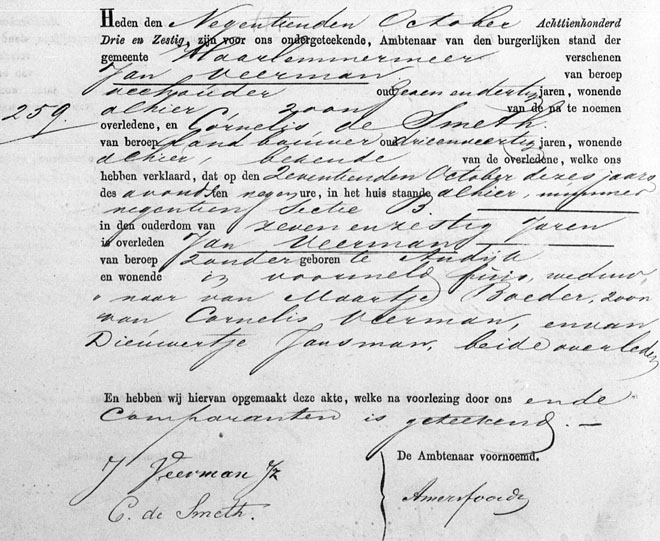 Heden den Negentienden October Achttienhonderd
Drie en Zestig, zijn voor ons ondergeteekende, Ambtenaar van den burgerlijken stand der
gemeente Haarlemmermeer verschenen
Jan Veerman van beroep
veehouder oud zeven en dertig jaren, wonende
259. alhier, zoon van de na te noemen
overledene, en Cornelis de Smeth.
van beroep Landbouwer oud drieenveertig jaren, wonende
alhier, bekende van de overledene, welke ons
hebben verklaard, dat op den Zeventienden October dezes jaars
des avonds ten negen ure, in het huis staande alhier, nummer
negentien Sectie B.
in den ouderdom van zevenenzestig Jaren
is overleden Jan Veerman
van beroep zonder geboren te Andijk
en wonende in voormeld huis, weduw,
naar van Maartje Boeder, zoon
van Cornelis Veerman, en van
Dieuwertje Jansman, beide overleden
En hebben wij hiervan opgemaakt deze akte, welke na voorlezing door ons ende
Comparanten is geteekend.
De Ambtenaar voornoemd.
J Veerman Jz
Amersfoordt
C. de Smeth.